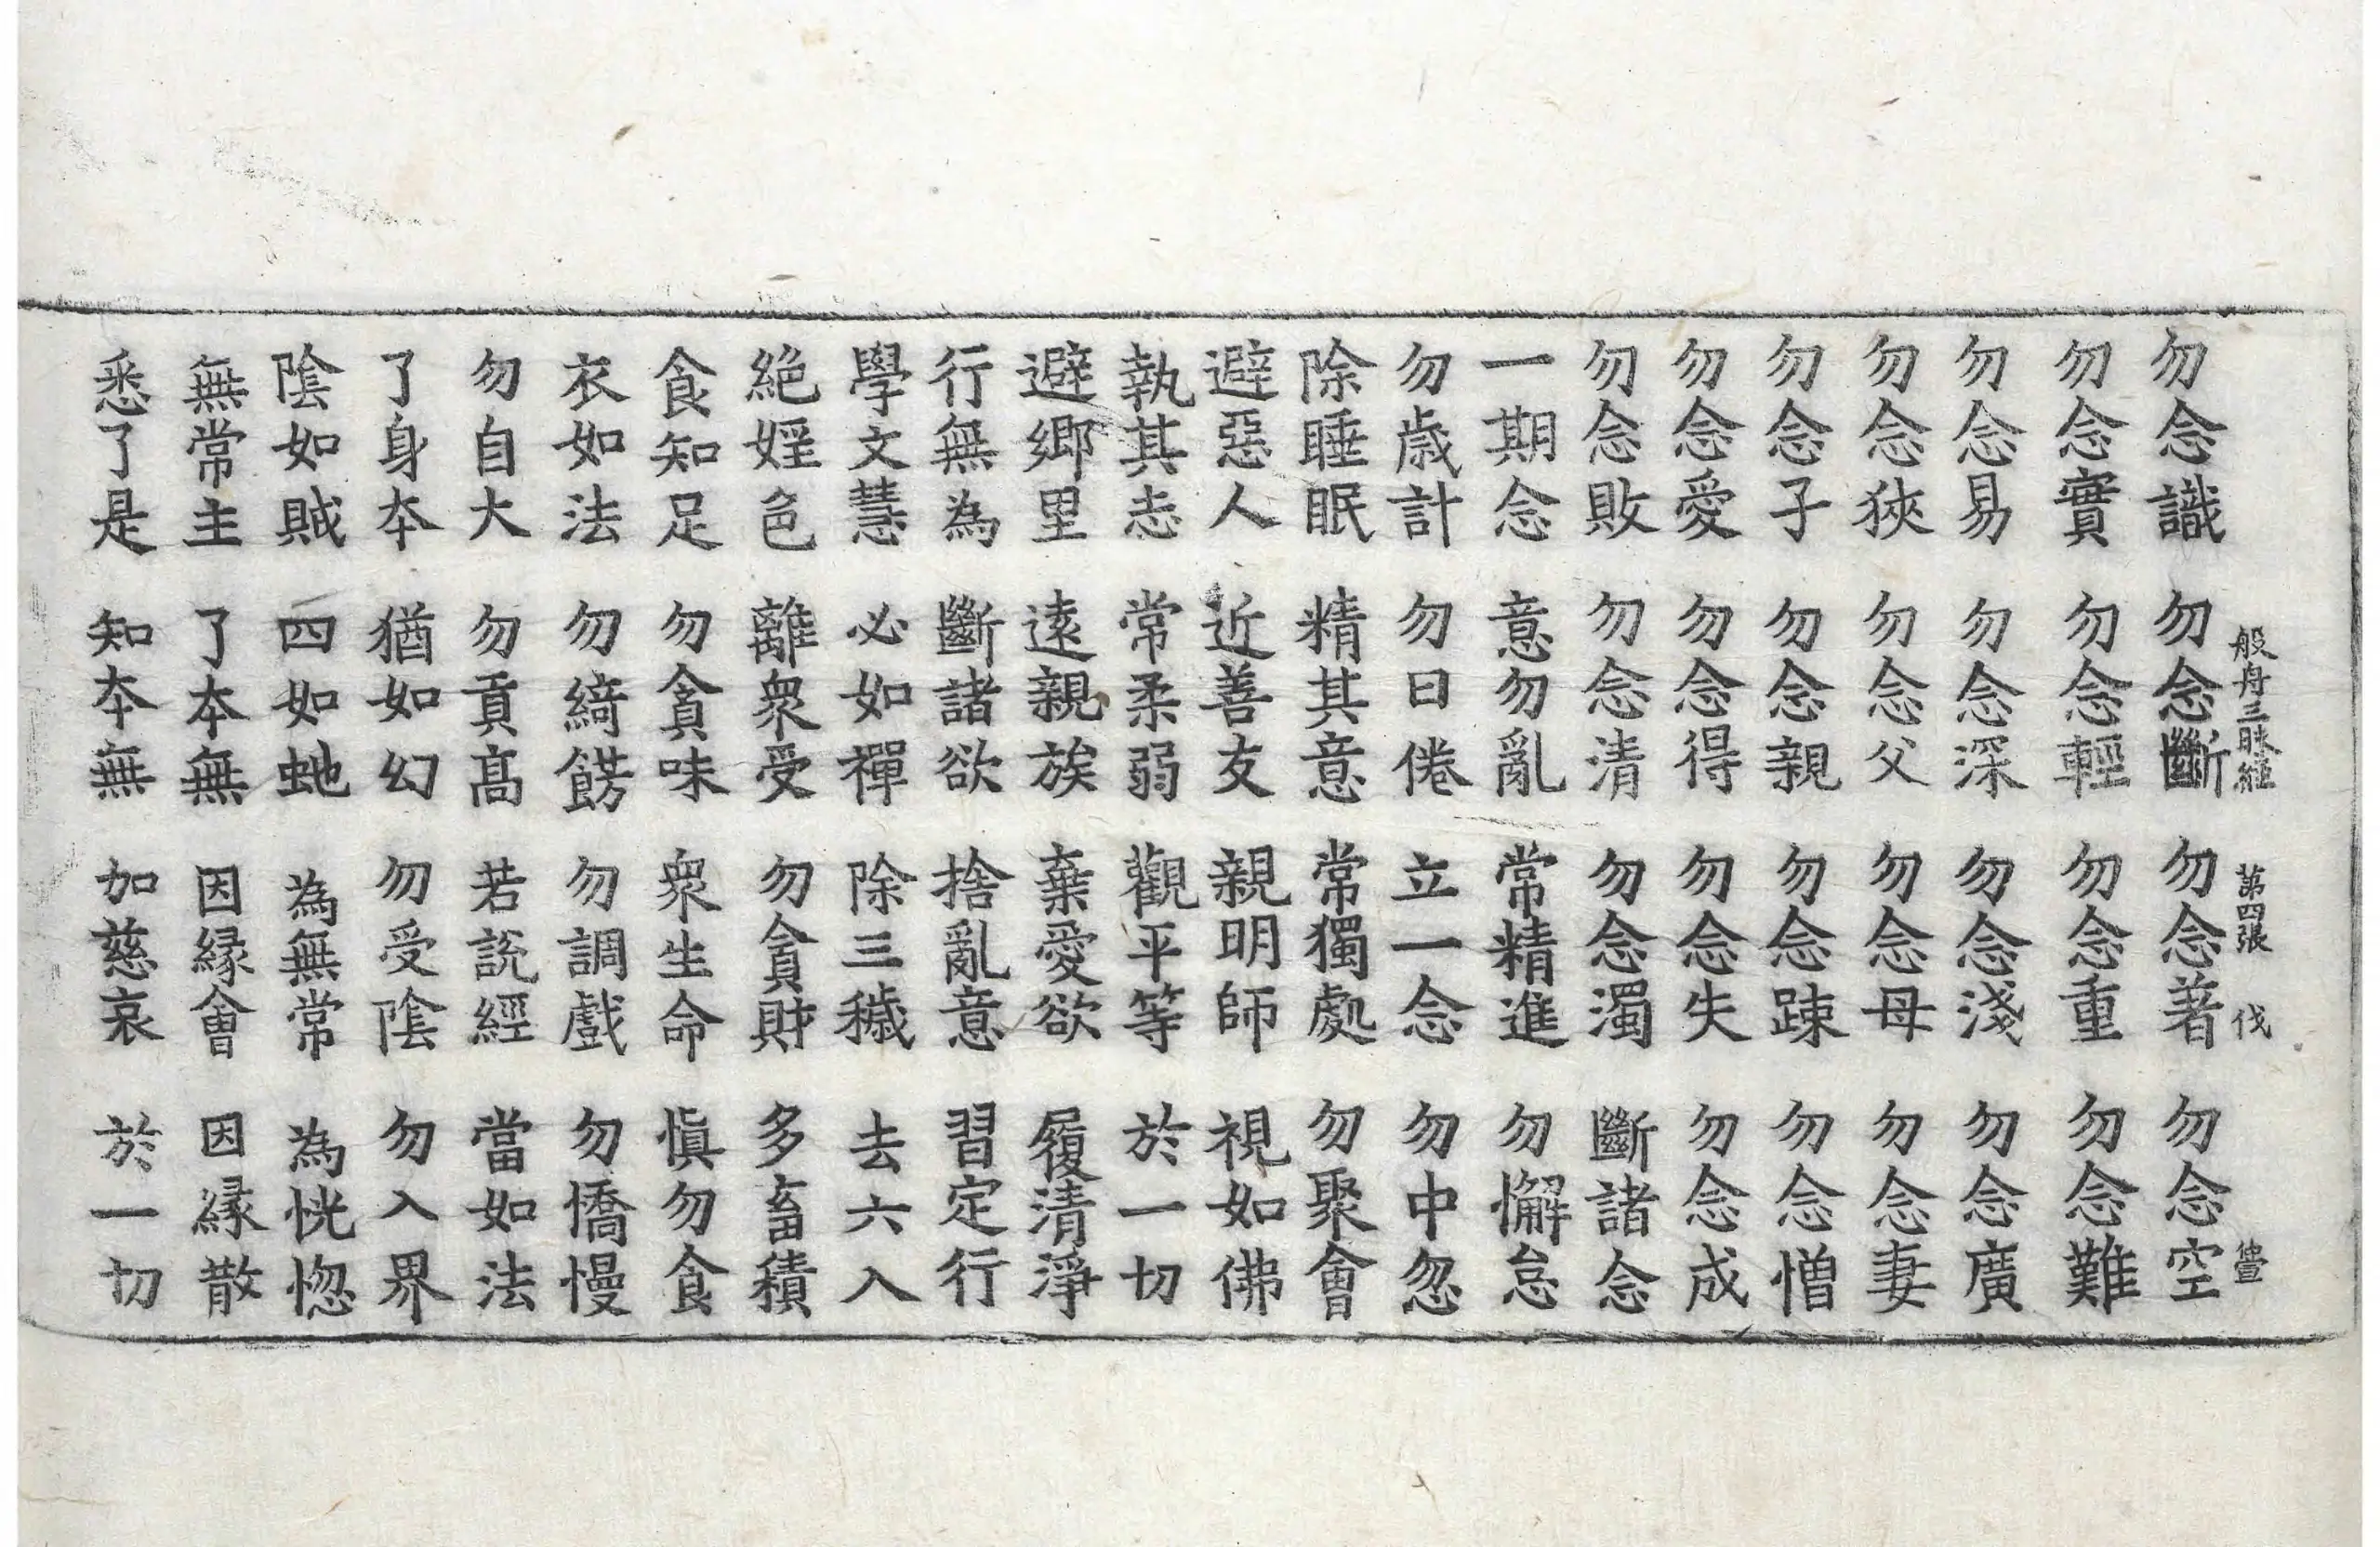 般舟三昧經 第四張 伐
勿念識 勿念斷 勿念著 勿念空
勿念實 勿念輕 勿念重 勿念難
勿念易 勿念深 勿念淺 勿念廣
勿念狹 勿念父 勿念母 勿念妻
勿念子 勿念親 勿念踈 勿念憎
勿念愛 勿念得 勿念失 勿念成
勿念敗 勿念清 勿念濁 斷諸念
一期念 意勿亂 常精進 勿懈怠
勿歳計 勿日倦 立一念 勿中忽
除睡眠 精其意 常獨處 勿聚會
避惡人 近善友 親明師 視如佛
執其志 常柔弱 觀平等 於一切
避鄉里 遠親族 棄愛欲 履清淨
行無為 斷諸欲 捨亂意 習定行
學文慧 必如禪 除三穢 去六入
絶婬色 離衆受 勿貪財 多畜積
食知足 勿貪味 衆生命 愼勿食
衣如法 勿綺餝 勿調戲 勿憍慢
勿自大 勿貢髙 若說經 當如法
了身夲 猶如幻 勿受陰 勿入界
陰如賊 四如虵 為無常 為恍惚
無常主 了夲無 因縁會 因縁散
悉了是 知夲無 加慈哀 於一切